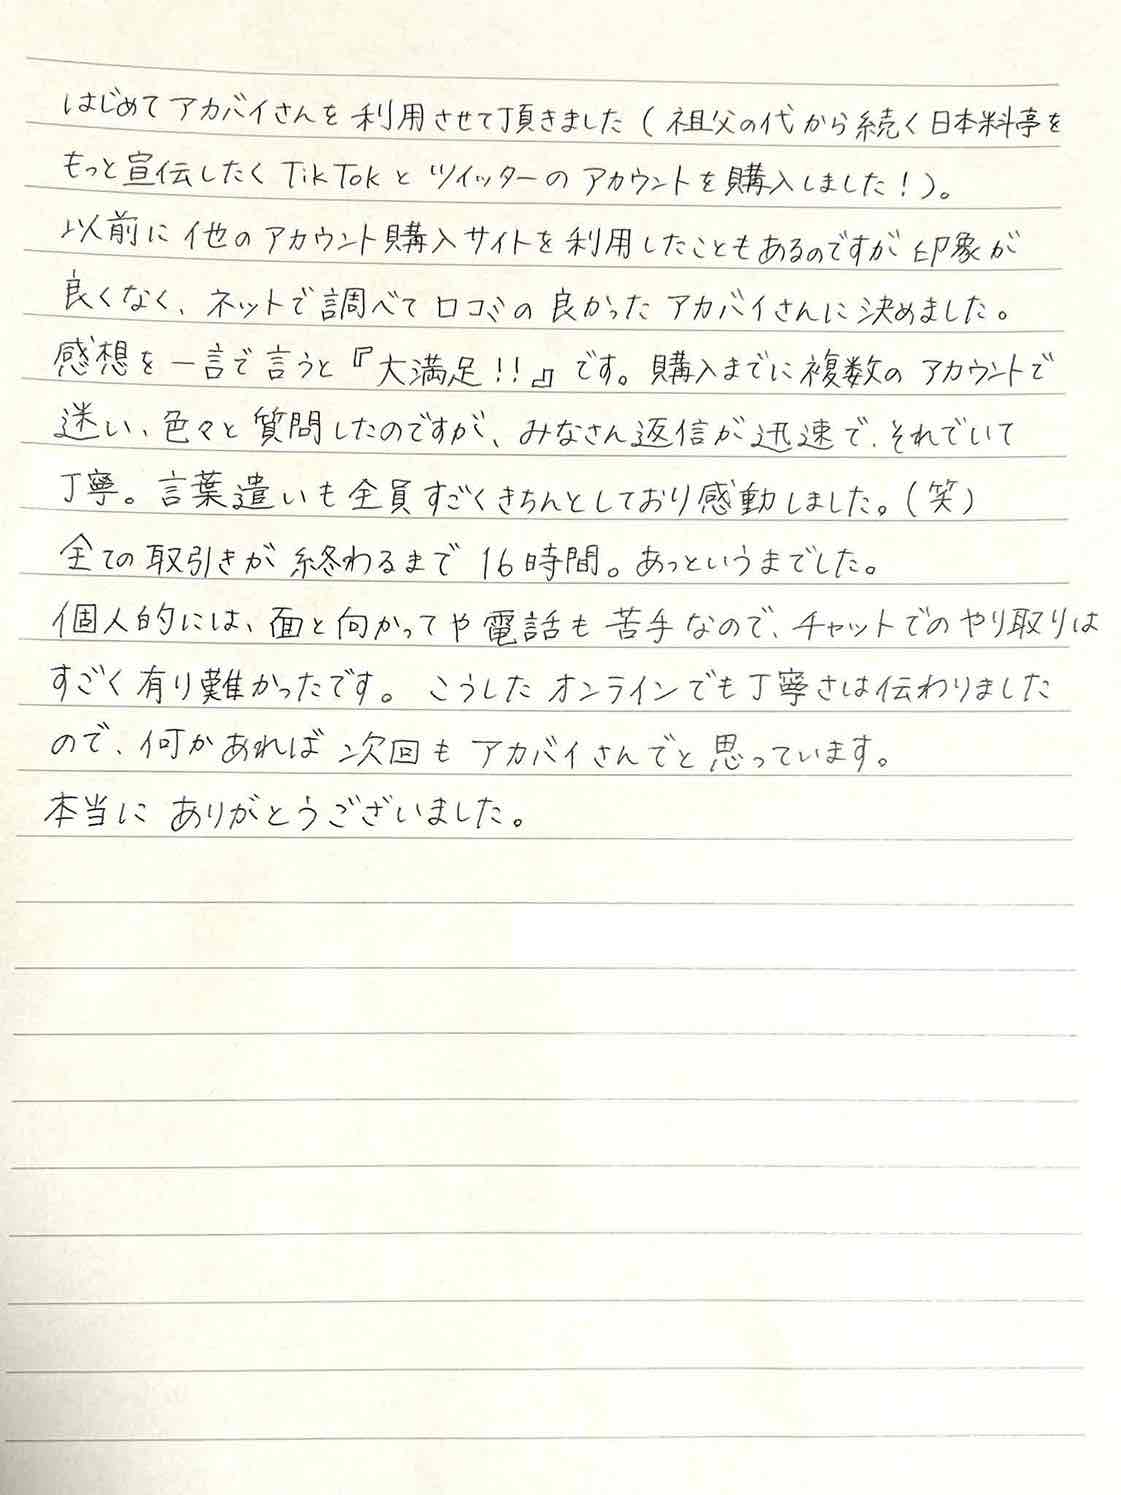 はじめてアカバイさんを利用させて頂きました(祖父の代から続く日本料亭を
もっと宣伝したくTikTokとツイッターのアカウントを購入しました!)。
以前に他のアカウント購入サイトを利用したこともあるのですが印象が
良くなく、ネットで調べて口コミの良かったアカバイさんに決めました。
感想を一言で言うと『大満足!!』です。購入までに複数のアカウントで
迷い、色々と質問したのですが、みなさん返信が迅速で、それでいて
丁寧。言葉遣いも全員すごくきちんとしており感動しました。(笑)
全ての取引きが終わるまで16時間。あっというまでした。
個人的には、面と向かってや電話も苦手なので、チャットでのやり取りは
すごく有り難かったです。こうしたオンラインでも丁寧さは伝わりました
ので、何かあれば次回もアカバイさんでと思っています。
本当にありがとうございました。